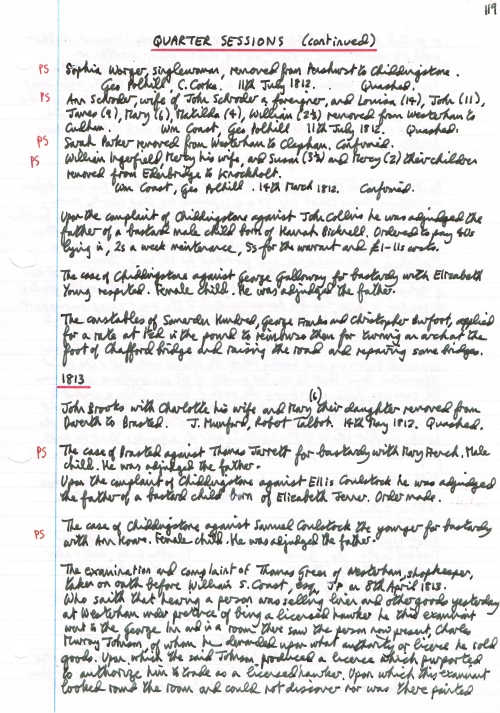 119
QUARTER SESSIONS (continued)
PS Sophia Worger, singlewoman, removed from Penshurst to Chiddingstone.
Geo Polhill, C. Corke. 11th July 1812. Quashed.
PS Ann Schroder, wife of John Schroder a foreigner, and Louisa (14), John (11),
James (9), Mary (6), Matilda (4), William (2½) removed from Westerham to
Culham. Wm Coast, Geo Polhill 11th July 1812. Quashed.
PS Sarah Parker removed from Westerham to Clapham. Confirmed.
PS William Ingerfield Mercy his wife, and Susan (3½) and Mercy (2) their children
removed from Edenbridge to Knockholt.
Wm Coast, Geo Polhill. 14th March 1812. Confirmed.
Upon the complaint of Chiddingstone against John Collins he was adjudged the
father of a bastard male child born of Hannah Bicknell. Ordered to pay 40s
lying in, 2s a week maintenance, 5s for the warrant and £1-11s costs.
The case of Chiddingstone against George Galloway for bastardy with Elizabeth
Young respited. Female child. He was adjudged the father.
The constables of Somerden Hundred, George Franks and Christopher Burfoot, applied
for a rate at in the pound to reimburse them for turning an arch at the
foot of Chafford bridge and raising the road and repairing some bridges.
1813
John Brooks with Charlotte his wife and Mary (6) their daughter removed from
Darenth to Brasted. J. Mumford, Robert Talbot. 14th May 1812. Quashed.
PS The case of Brasted against Thomas Jarrett for bastardy with Mary French. Male
child. He was adjudged the father.
Upon the complaint of Chiddingstone against Ellis Coulstock he was adjudged
the father of a bastard child born of Elizabeth Jenner. Order made.
The case of Chiddingstone against Samuel Coulstock the younger for bastardy
PS with Ann. Female child. He was adjudged the father.
The examination and complaint of Thomas Green of Westerham, shopkeeper,
taken on oath before William S. Coast, Esq, J.P. on 8th April 1813.
Who saith that hearing a person was selling linen and other goods yesterday
at Westerham under pretence of being a licensed hawker he this examinant
went to the George Inn and in a room there saw the person now present, Charles
Murray Johnson, of whom he demanded upon what authority or licence he sold
goods. Upon which the said Johnson produced a licence which purported
to authorize him to trade as a licensed hawker. Upon which this examinant
looked round the room and could not discover nor was there painted